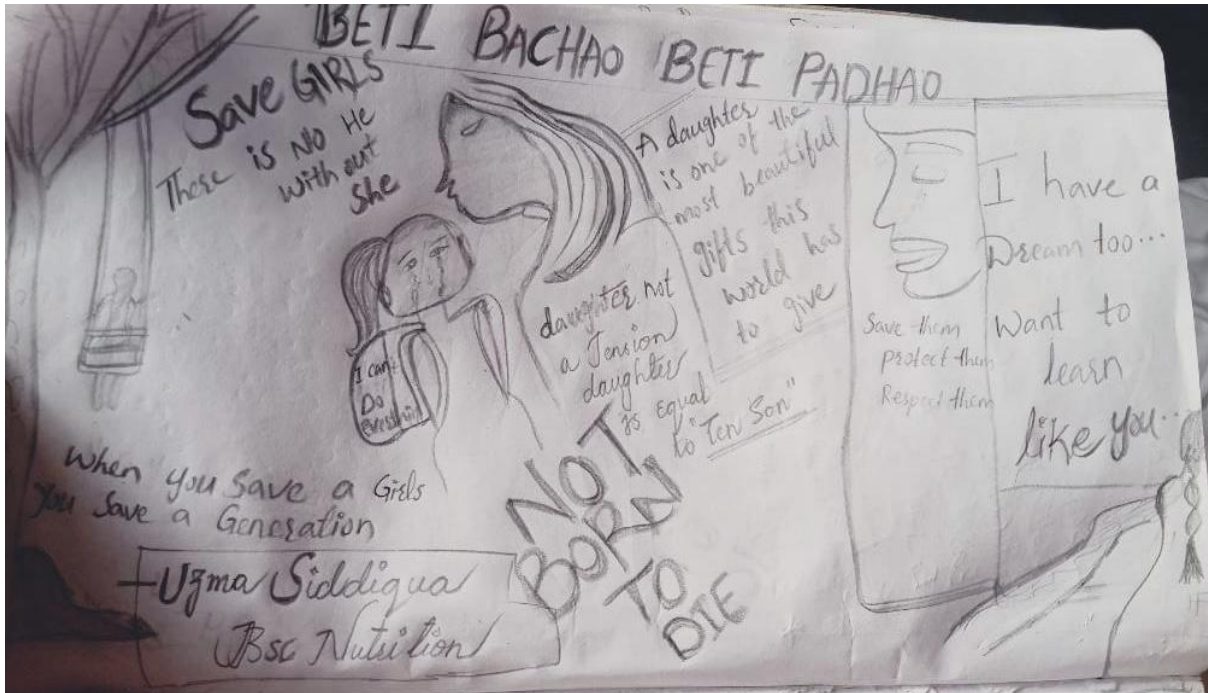 BETI BACHAO BETI PADHAO
Save GIRLS
There is No He
with out
She
A daughter
is one of the
most beautiful
gifts this
world has
to give
daughter not
a Tension
daughter
is equal
to "Ten Son"
I can't
Do
Save them
protect them
Respect them
I have a
Dream too...
Want to
learn
like you...
When you save a Girls
you save a Generation
NOT
BORN
TO
DIE
-Uzma Siddiqua
Bsc Nutrition